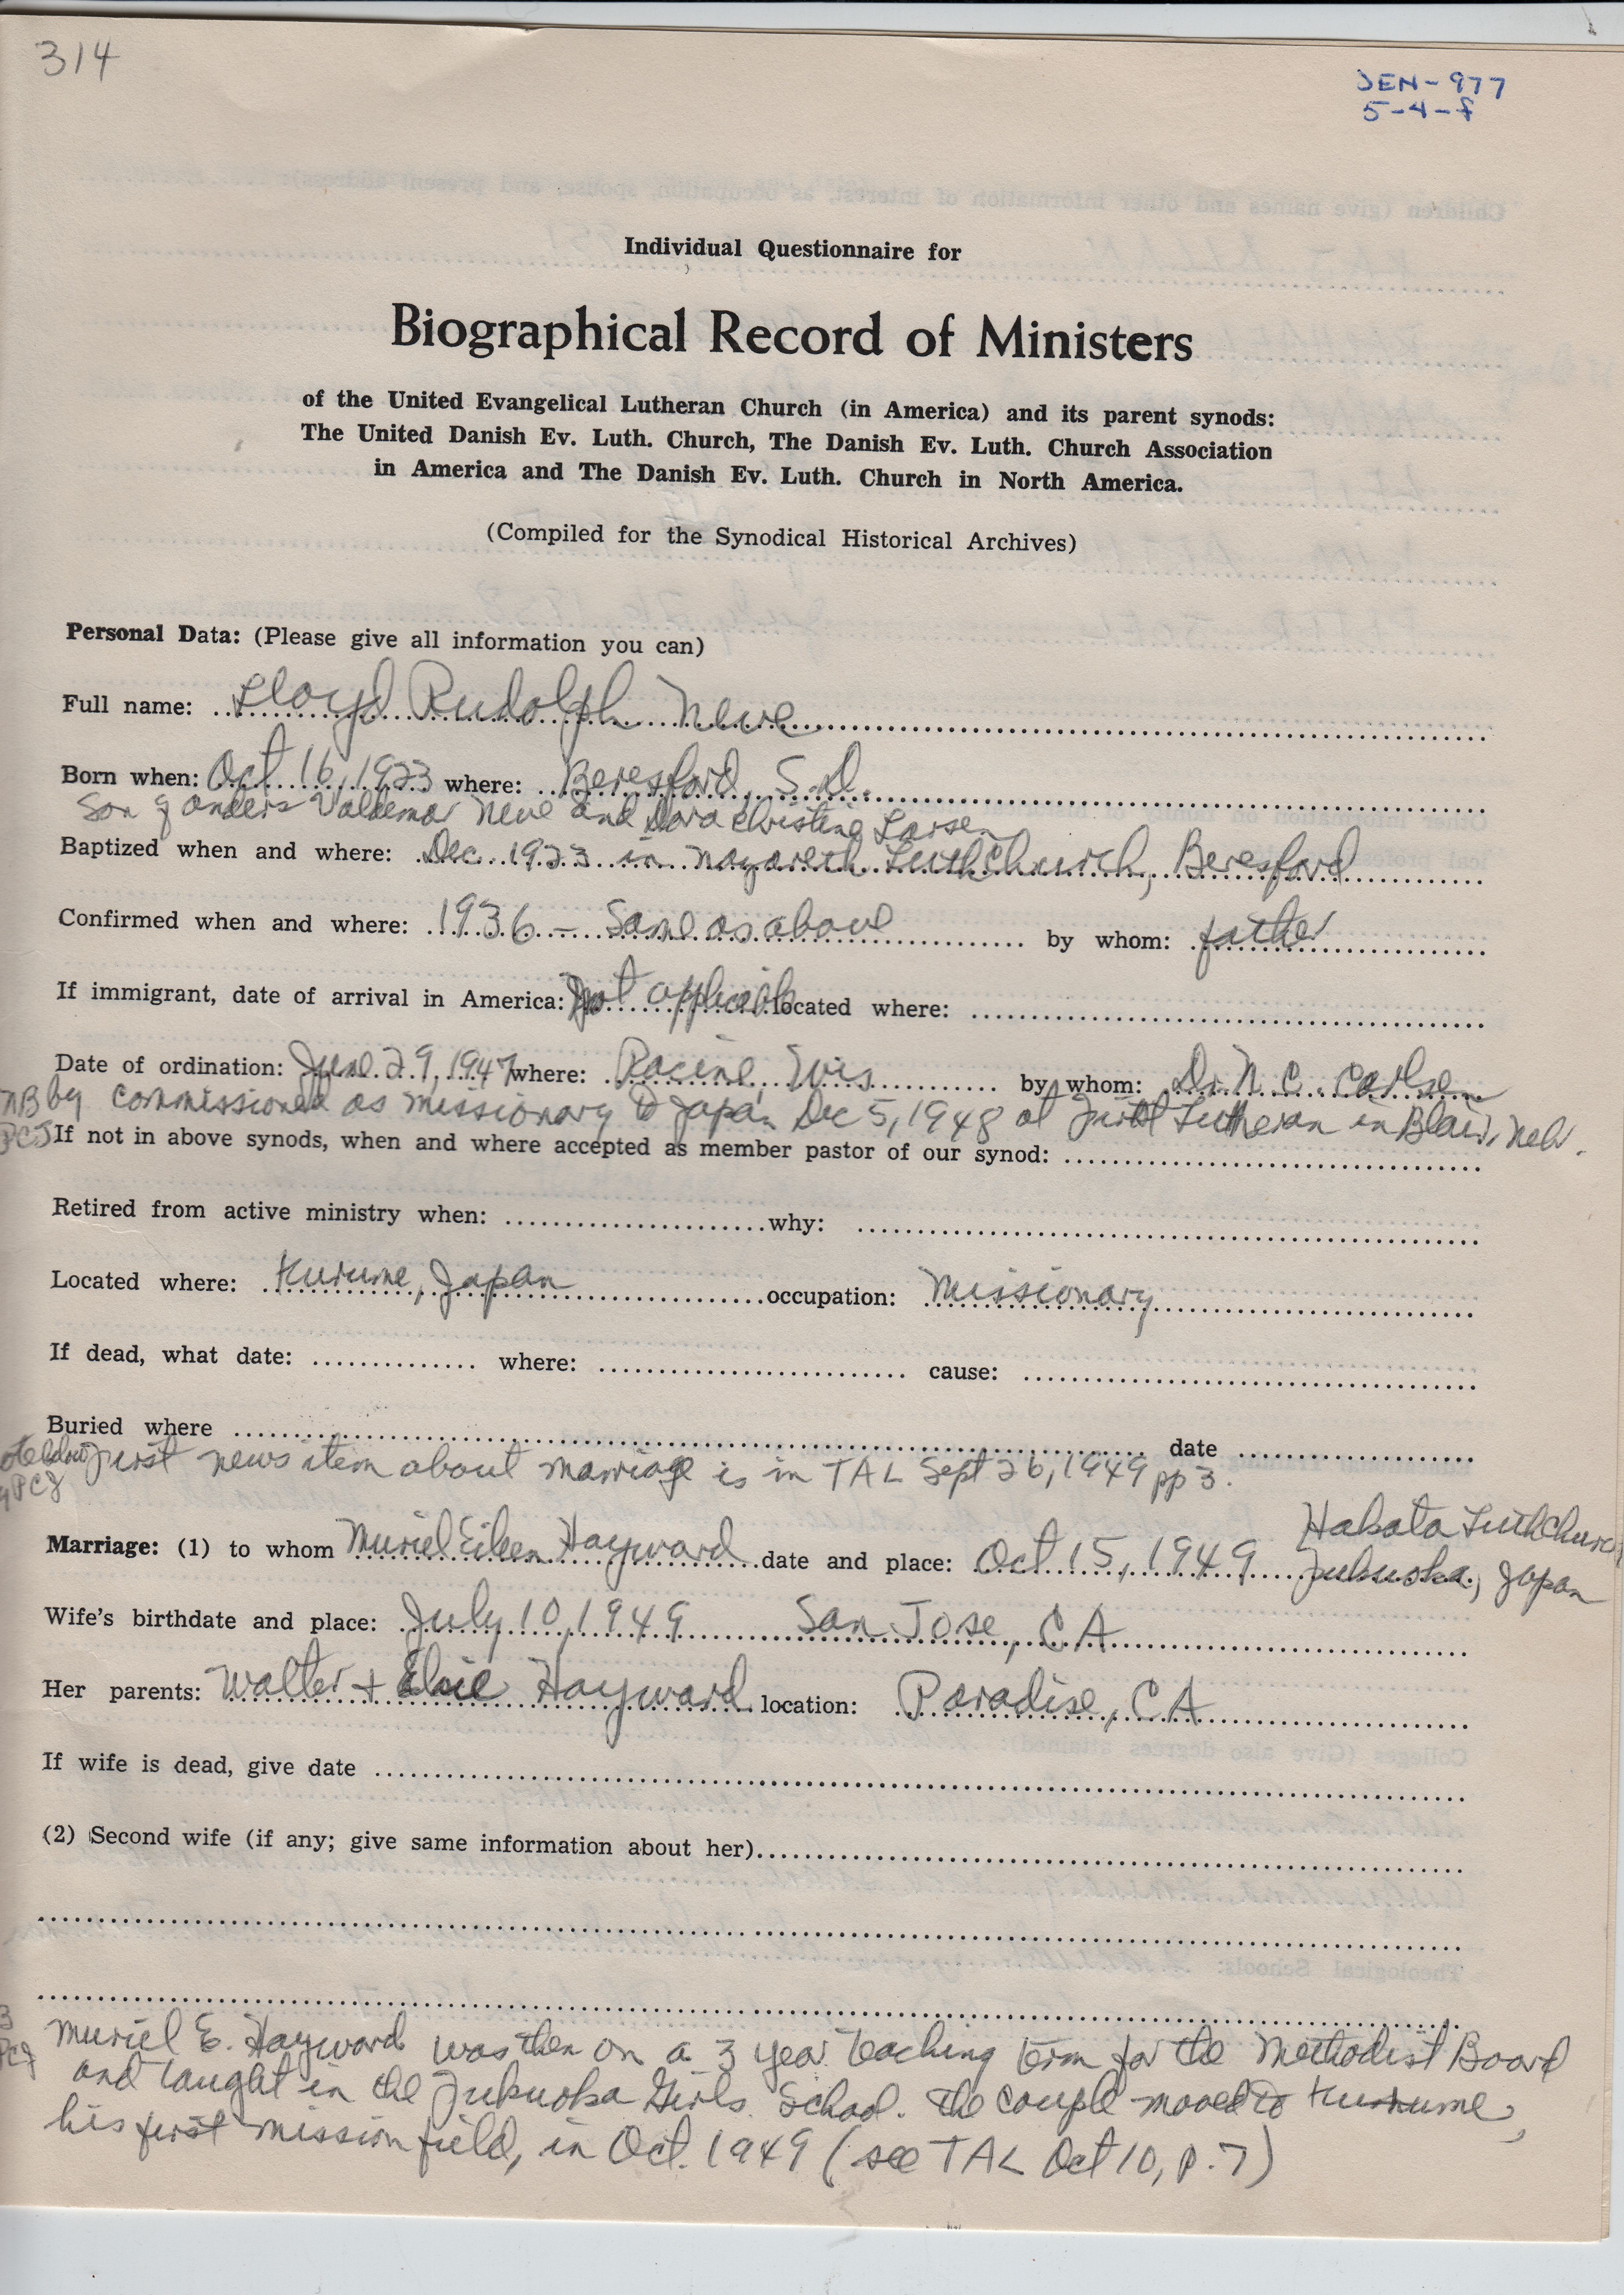 314
DEN-977
5-4-f
Individual Questionnaire for
Biographical Record of Ministers
of the United Evangelical Lutheran Church (in America) and its parent synods:
The United Danish Ev. Luth. Church, The Danish Ev. Luth. Church Association
in America and The Danish Ev. Luth. Church in North America.
(Compiled for the Synodical Historical Archives)
Personal Data: (Please give all information you can)
Full name: Lloyd Rudolph Neve
Born when: Oct 16, 1923 where: Beresford, S.D.
Son of Anders Valdemar Neve and Dora Christine Larsen
Baptized when and where: Dec. 1923 in Nazareth Luth Church, Beresford
Confirmed when and where: 1936 - Same as above by whom: father
If immigrant, date of arrival in America: Not applicable located where:
Date of ordination: June 29, 1947 where: Racine, Wis by whom: Dr. N. C. Carlsen
NB by commissioned as missionary to Japan Dec 5, 1948 at First Lutheran in Blair, Neb.
PCJ If not in above synods, when and where accepted as member pastor of our synod:
Retired from active ministry when: why:
Located where: Kurume, Japan occupation: Missionary
If dead, what date: where: cause:
Buried where date
First news item about marriage is in TAL Sept 26, 1949 pp 3.
PCJ
Hakata Luth Church
Marriage: (1) to whom Muriel Eileen Hayward date and place: Oct 15, 1949 Fukuoka, Japan
Wife's birthdate and place: July 10, 1949 San Jose, CA
Her parents: Walter + Elsie Hayward location: Paradise, CA
If wife is dead, give date
(2) Second wife (if any; give same information about her)
Muriel E. Hayward was then on a 3 year teaching term for the Methodist Board
PCJ and taught in the Fukuoka Girls School. The couple moved to Kurume,
his first mission field, in Oct. 1949 (see TAL Oct 10, p. 7)